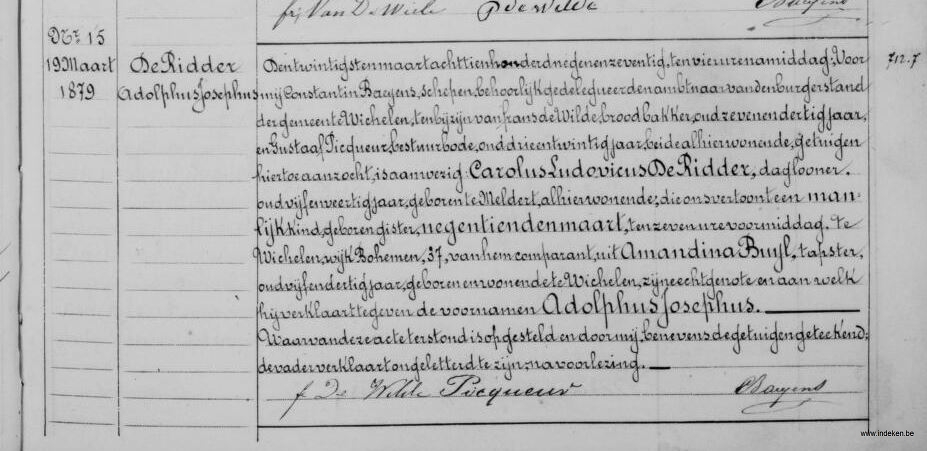 frs Van De Wiele P de Wilde CBaeyens
No 15
19 Maart 1879
De Ridder Adolphus Josephus
Den twintigsten maart achttien honderd negen en zeventig, ten vier ure namiddag; Voor
mij Constantin Baeyens, schepen, behoorlijk gedelegueerden ambtnaar van den burgerstand
der gemeente Wichelen, ten bijzijn van frans de Wilde, broodbakker, oud zeven en dertig jaar,
en Gustaaf Picqueur, bestuurbode, oud drie en twintig jaar, beide alhier wonende, getuigen
hiertoe aanzocht, is aanwezig: Carolus Ludovicus De Ridder, daglooner.
oud vijf en veertig jaar, geboren te Meldert, alhier wonende; die ons vertoont een man-
lijk kind, geboren gister, negentienden maart, ten zeven ure voormiddag. te
Wichelen, wijk Bohemen, 37, van hem comparant, uit Amandina Buyl, tapster,
oud vijf en dertig jaar, geboren en wonende te Wichelen, zijne echtgenote en aan welk
hij verklaart te geven de voornamen Adolphus Josephus.
Waarvan deze acte terstond is opgesteld en door mij, benevens de getuigen geteekend;
de vader verklaart ongeletterd te zijn; na voorlezing.
f De Wilde Picqueur CBaeyens
712.7
www.indeken.be